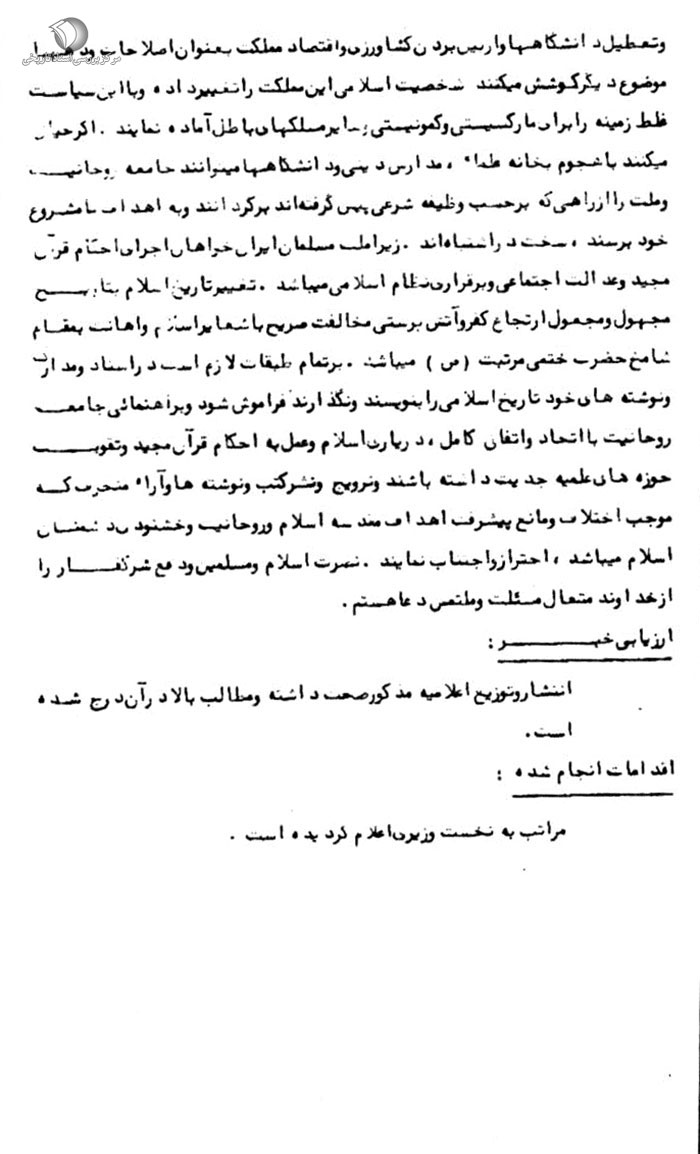 مرکز بررسی اسناد تاریخی
وتعطیل دانشگاهها وازبین بردن کشاورزی واقتصاد مملکت بعنوان اصلاحات و دهها
موضوع دیگرکوشش میکنند شخصیت اسلامی این مملکت را تغییرداده وبا این سیاست
غلط زمینه را برای مارکسیستی وکمونیستی وسایرمسلکهای باطل آماده نمایند . اگرخیال
میکنند باهجوم بخانه علماء ، مدارس دینی ودانشگاهها میتوانند جامعه روحانیت
وملت را ازراهی که برحسب وظیفه شرعی پیش گرفته‌اند برگردانند وبه اهداف نامشروع
خود برسند ، سخت دراشتباه‌اند . زیرا ملت مسلمان ایران خواهان اجرای احکام قرآن
مجید وعدالت اجتماعی وبرقراری نظام اسلامی میباشد . تغییرتاریخ اسلام بتاریخ
مجهول ومجعول ارتجاع کفروآتش پرستی مخالفت صریح باشعایراسلام واهانت بمقام
شامخ حضرت ختمی مرتبت (ص) میباشد . برتمام طبقات لازم است دراسناد ومدارک
ونوشته های خود تاریخ اسلامی را بنویسند ونگذارند فراموش شود وبراهنمائی جامعه
روحانیت با اتحاد واتفاق کامل ، درباره اسلام وعمل به احکام قرآن مجید وتقویت
حوزه های علمیه جدیت داشته باشند وترویج ونشرکتب ونوشته ها وآراء منحرف که
موجب اختلاف ومانع پیشرفت اهداف مقدسه اسلام وروحانیت وخشنودی دشمنان
اسلام میباشد ، احترازواجتناب نمایند . نصرت اسلام ومسلمین ودفع شرکفار را
ازخداوند متعال مسئلت وملتمس دعا هستم .
ارزیابی خبر :
انتشاروتوزیع اعلامیه مذکورصحت داشته ومطالب بالا درآن درج شده
است .
اقدامات انجام شده :
مراتب به نخست وزیری اعلام گردیده است .